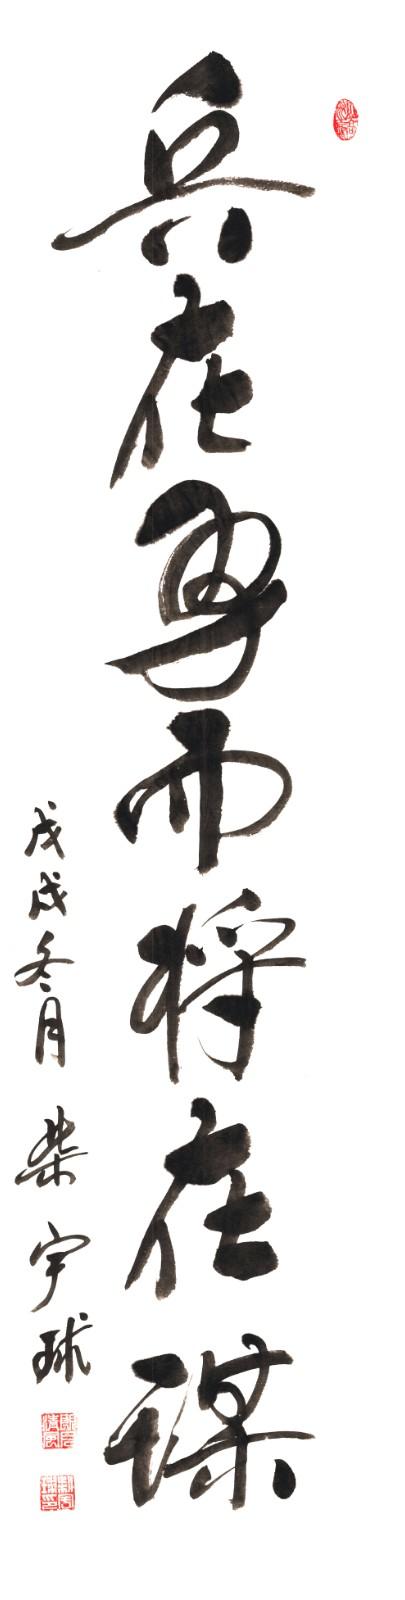 兵在勇而将在谋
戊戌冬月 柴宇球